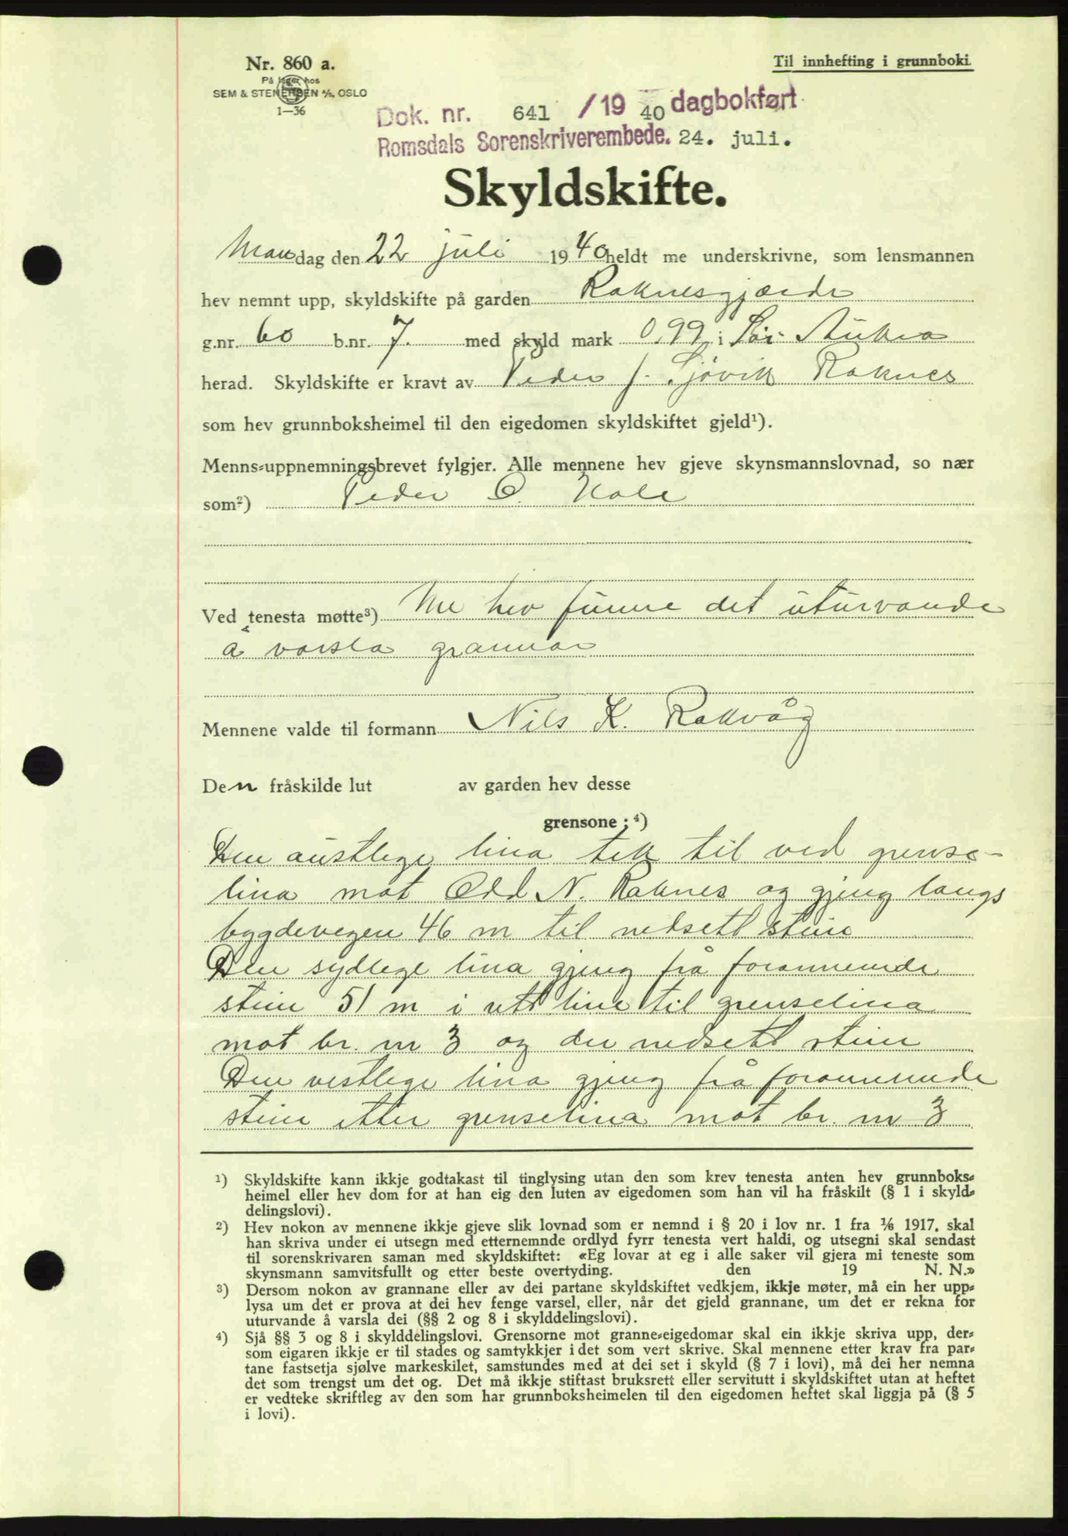 Nr. 860 a.
Til innhefting i grunnboki.
På lager hos
SEM & STENERSEN A/S, OSLO
1—36
Dok. nr. 641 / 19 40 dagbokført
Romsdals Sorenskriverembede. 24. juli.
Skyldskifte.
Mandag den 22 juli 1940 heldt me underskrivne, som lensmannen
hev nemnt upp, skyldskifte på garden Raknesgjærde
g.nr. 60 b.nr. 7. med skyld mark 0.99 i Sør-Aukra
herad. Skyldskifte er kravt av Peder J. Sjøvik Raknes
som hev grunnboksheimel til den eigedomen skyldskiftet gjeld¹).
Menns=uppnemningsbrevet fylgjer. Alle mennene hev gjeve skynsmannslovnad, so nær
som²) Peder O. Hole
Ved tenesta møtte³) Me hev funne det uturvande
å varsla grannar
Mennene valde til formann Nils K. Rakvåg
Den fråskilde lut av garden hev desse
grensone ; ⁴)
Den austlege lina tek til ved grense-
lina mot Odd N. Raknes og gjeng langs
bygdevegen 46 m til nedsett stein
Den sydlege lina gjeng frå forannemnde
stein 51 m i rett line til grenselina
mot br. nr 3 og der nedsett stein
Den vestlege lina gjeng frå forannemnde
stein etter grenselina mot br. nr 3
¹) Skyldskifte kann ikkje godtakast til tinglysing utan den som krev tenesta anten hev grunnboks=
heimel eller hev dom for at han eig den luten av eigedomen som han vil ha fråskilt (§ 1 i skyld=
delingslovi).
²) Hev nokon av mennene ikkje gjeve slik lovnad som er nemnd i § 20 i lov nr. 1 fra 1/6 1917, skal
han skriva under ei utsegn med etternemnde ordlyd fyrr tenesta vert haldi, og utsegni skal sendast
til sorenskrivaren saman med skyldskiftet: «Eg lovar at eg i alle saker vil gjera mi teneste som
skynsmann samvitsfullt og etter beste overtyding. den 19 N. N.»
³) Dersom nokon av grannane eller av dei partane skyldskiftet vedkjem, ikkje møter, må ein her upp=
lysa um det er prova at dei hev fenge varsel, eller, når det gjeld grannane, um det er rekna for
uturvande å varsla dei (§§ 2 og 8 i skylddelingslovi).
⁴) Sjå §§ 3 og 8 i skylddelingslovi. Grensorne mot granne=eigedomar skal ein ikkje skriva upp, der=
som eigaren ikkje er til stades og samtykkjer i det som vert skrive. Skal mennene etter krav fra par=
tane fastsetja sjølve markeskilet, samstundes med at dei set i skyld (§ 7 i lovi), må dei her nemna
det som trengst um det og. Det må ikkje stiftast bruksrett eller servitutt i skyldskiftet utan at heftet
er vedteke skriftleg av den som har grunnboksheimelen til den eigedomen heftet skal liggja på (§ 5
i lovi).